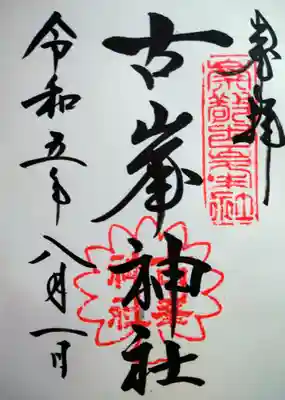 奉拝
古峯神社
令和五年八月一日
古峯神社